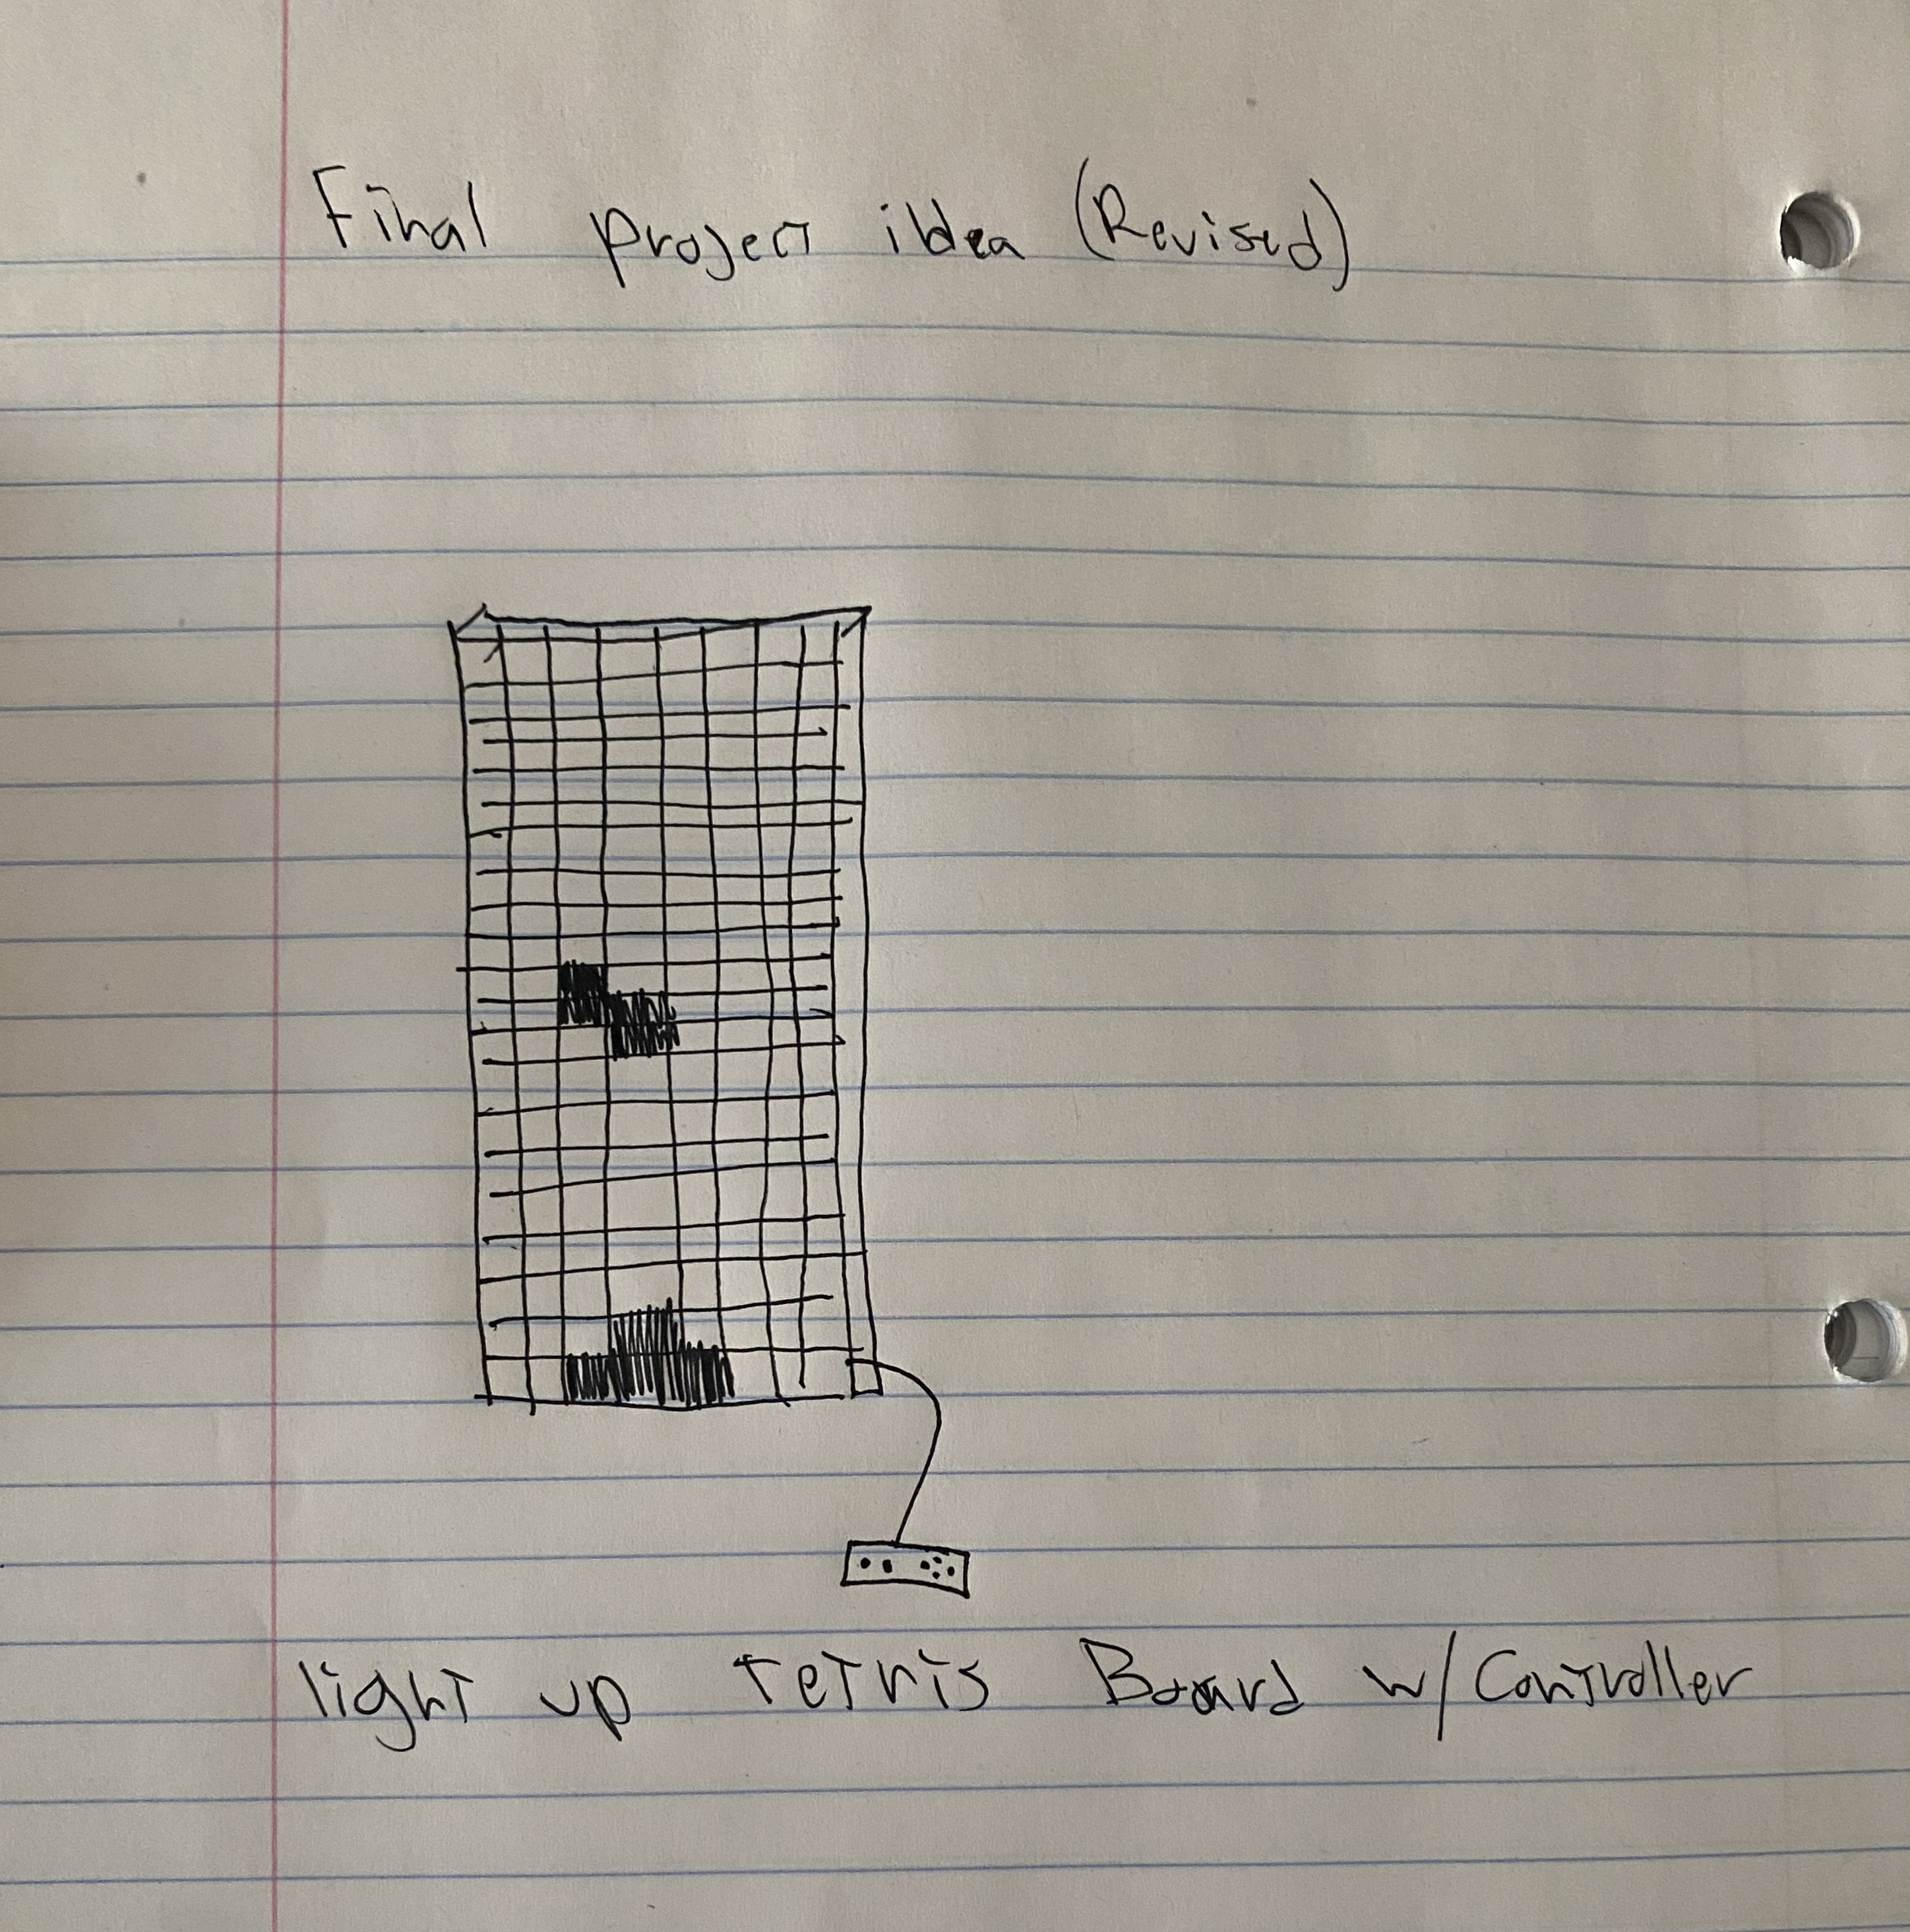 Final project idea (Revised)
light up tetris Board w/ Controller